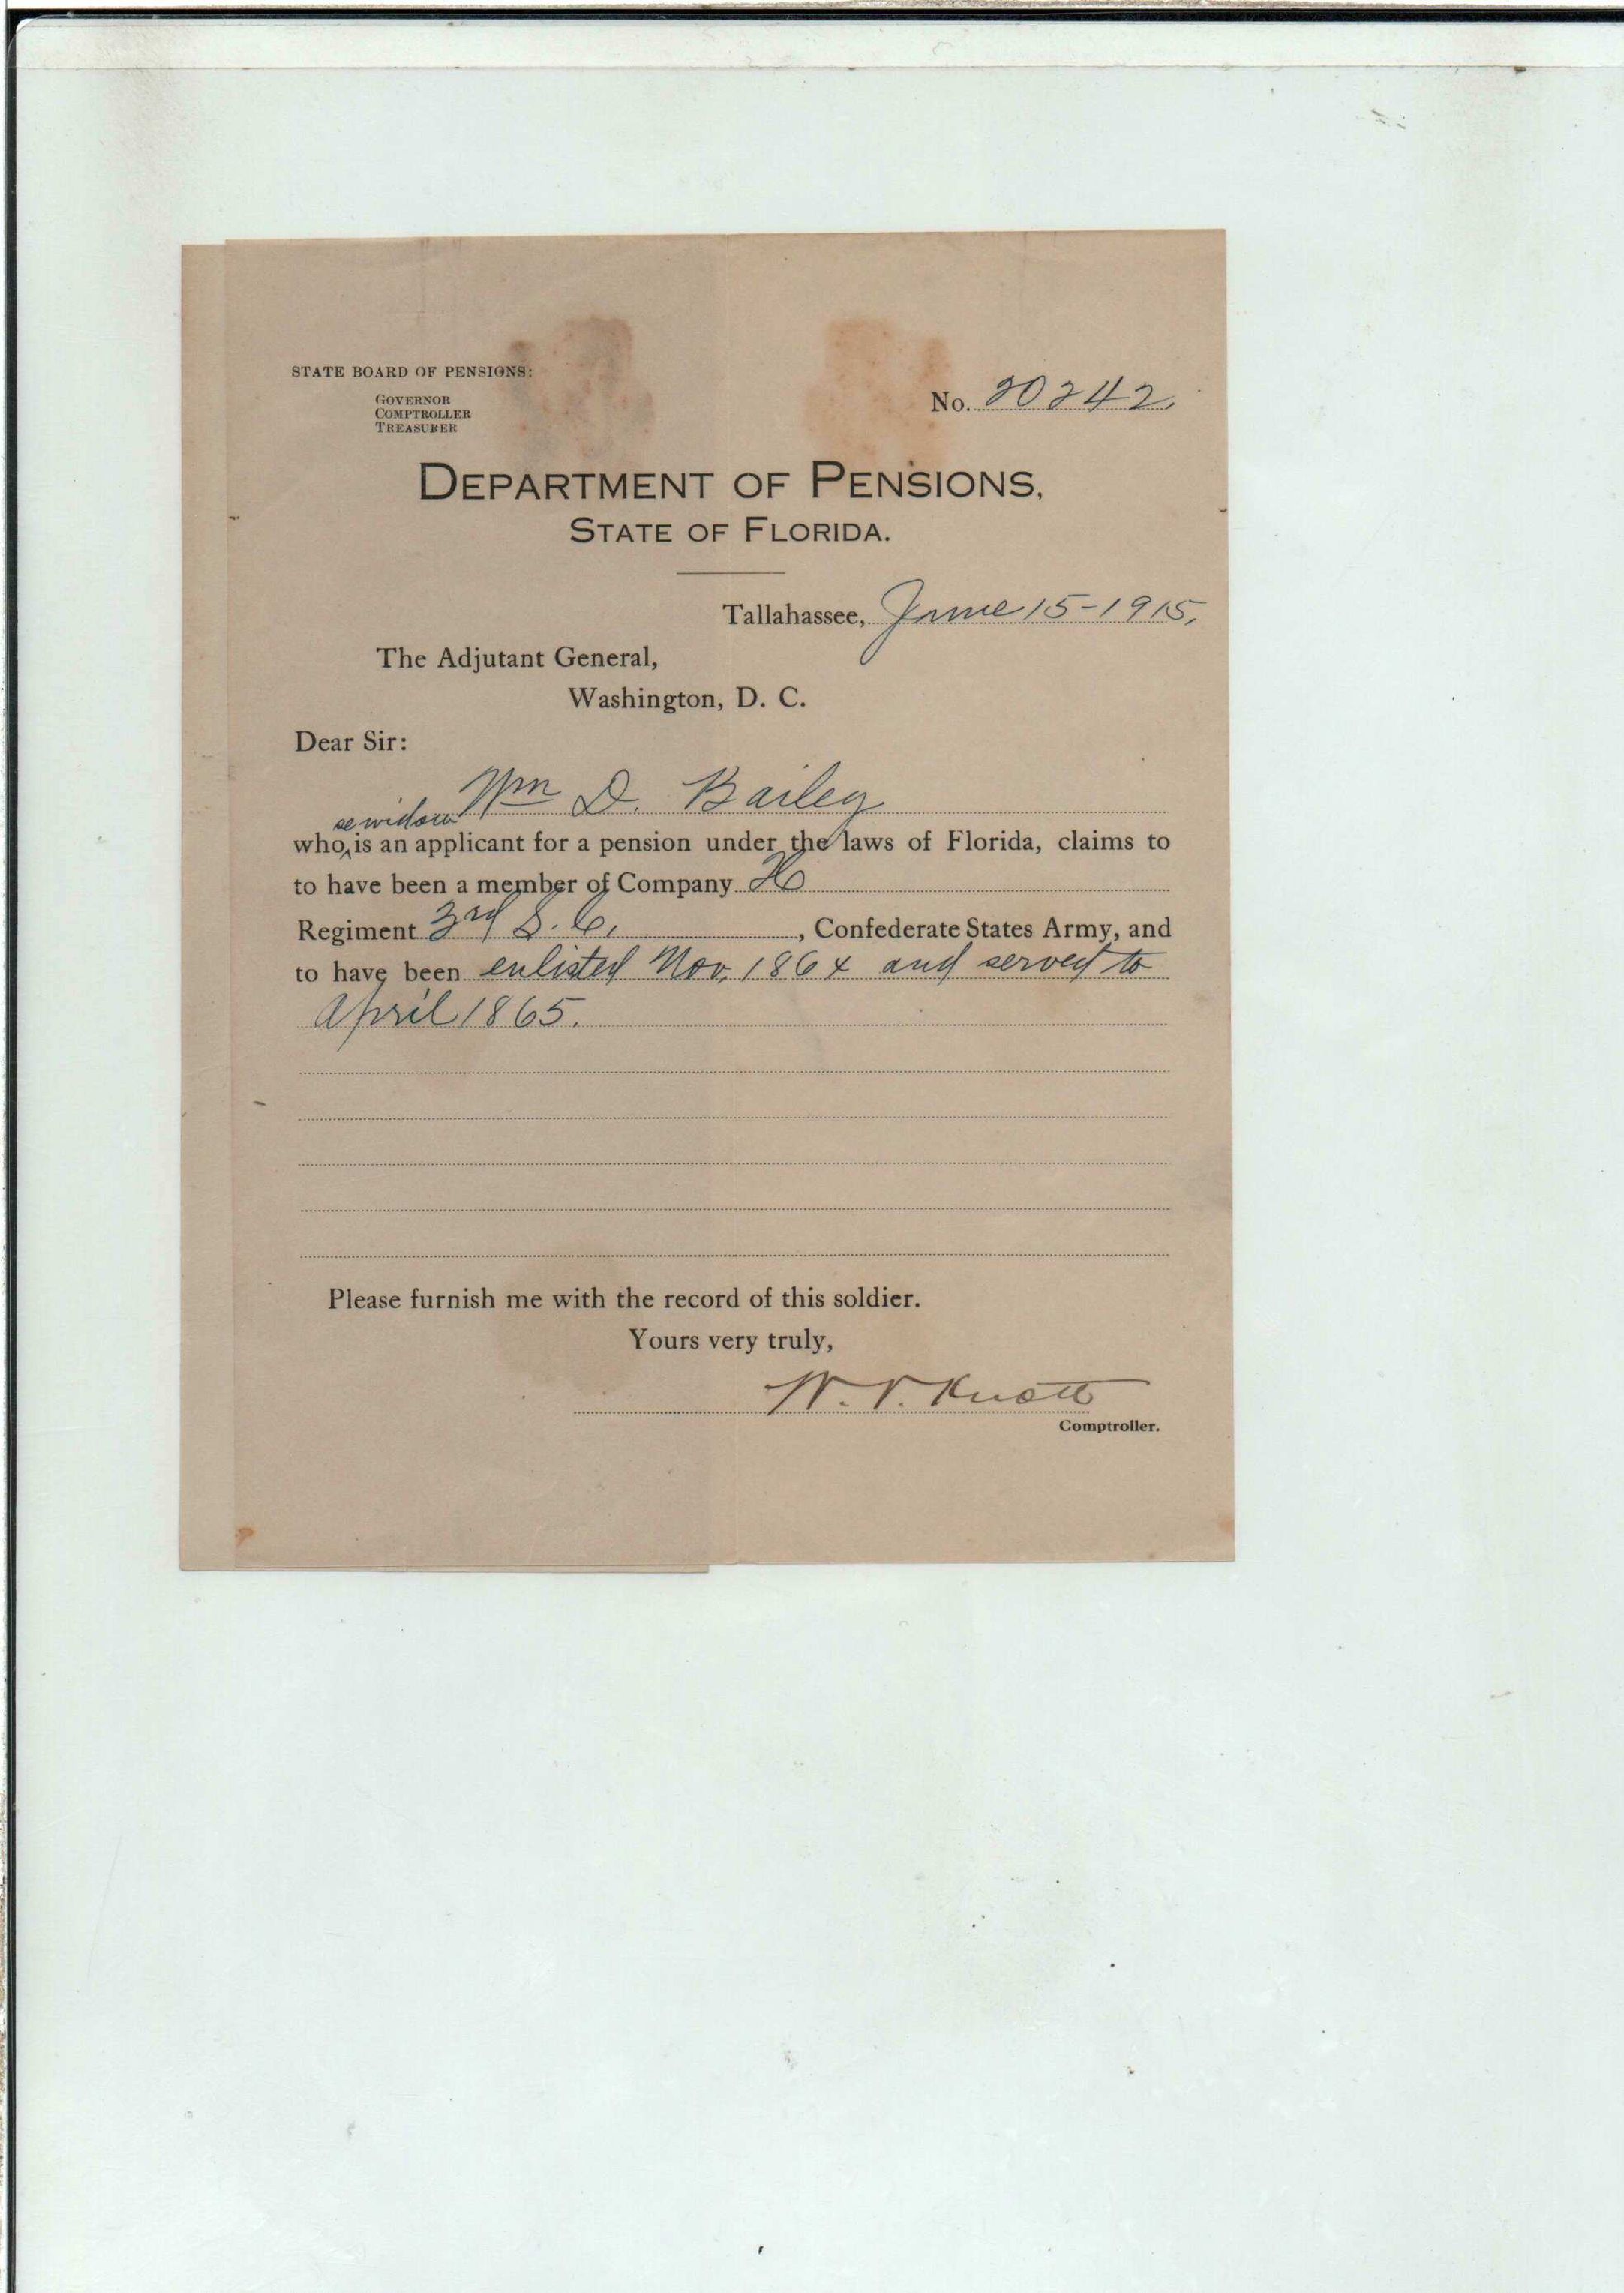 STATE BOARD OF PENSIONS:
GOVERNOR
COMPTROLLER
TREASURER
No. 20242.
DEPARTMENT OF PENSIONS,
STATE OF FLORIDA.
Tallahassee, June 15-1915.
The Adjutant General,
Washington, D. C.
Dear Sir:
Wm D. Bailey
se widow
who is an applicant for a pension under the laws of Florida, claims to
to have been a member of Company H
Regiment 3rd S. C. , Confederate States Army, and
to have been enlisted Nov. 1864 and served to
April 1865.
Please furnish me with the record of this soldier.
Yours very truly,
W. V. Knott
Comptroller.